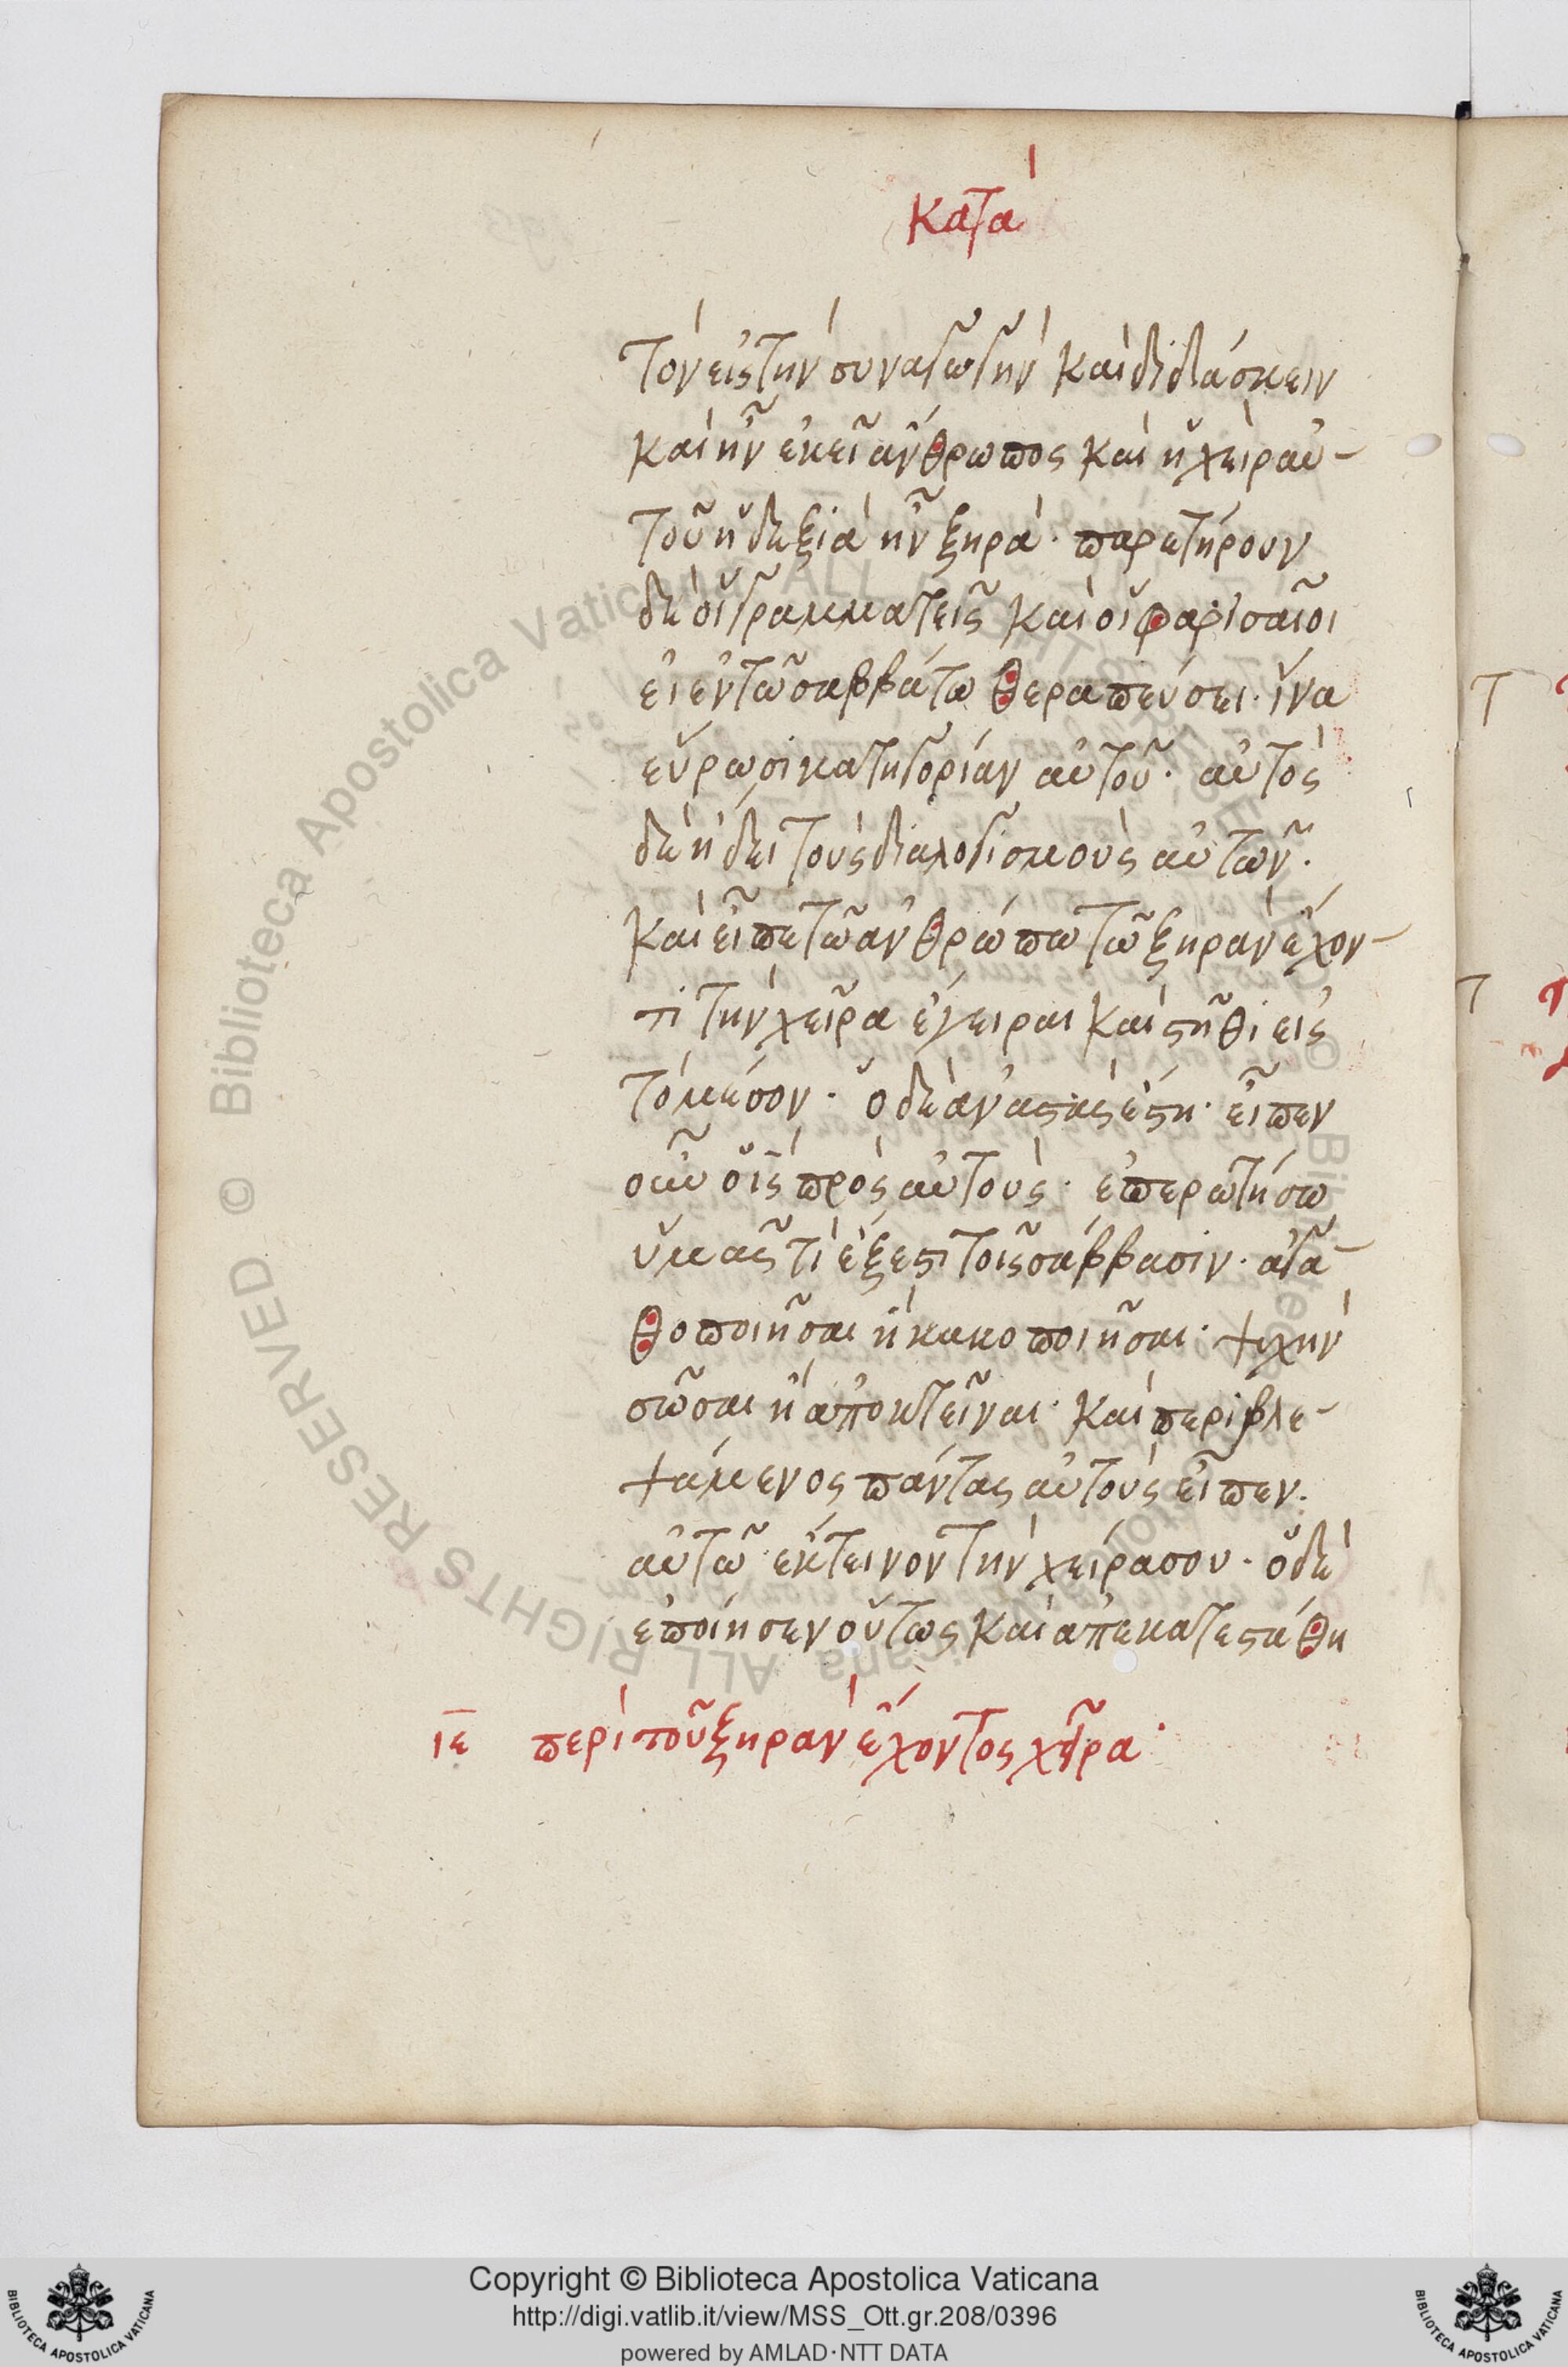 Κατὰ
τὸν εἰς τὴν συναγωγὴν καὶ διδάσκειν
καὶ ἦν ἐκεῖ ἄνθρωπος καὶ ἡ χεὶρ αὐ-
τοῦ ἡ δεξιὰ ἦν ξηρά· παρετήρουν
δὲ οἱ γραμματεῖς καὶ οἱ φαρισαῖοι
εἰ ἐν τῶ σαββάτω θεραπεύσει· ἵνα
εὕρωσι κατηγορίαν αὐτοῦ· αὐτὸς
δὲ ἤδει τοὺς διαλογισμοὺς αὐτῶν·
καὶ εἶπε τῶ ἀνθρώπω τῶ ξηρὰν ἔχον-
τι τὴν χεῖρα ἔγειραι καὶ στῆθι εἰς
τὸ μέσον· ὁ δὲ ἀναστὰς ἔστη· εἶπεν
οὖν ὁ ις̅ πρὸς αὐτούς· ἐπερωτήσω
ὑμᾶς τί ἔξεστι τοῖς σάββασιν· ἀγα-
θοποιῆσαι ἢ κακοποιῆσαι· ψυχὴν
σῶσαι ἢ ἀποκτεῖναι· καὶ περιβλε-
ψάμενος πάντας αὐτοὺς εἶπεν.
αὐτῶ ἔκτεινον τὴν χείρα σου· ὁ δὲ
ἐποίησεν οὕτως καὶ ἀπεκατεστάθη
ιε̅ περὶ τοῦ ξηρὰν ἔχοντος χεῖρα·
© Biblioteca Apostolica Vaticana ALL RIGHTS RESERVED
© Biblioteca Apostolica Vaticana ALL RIGHTS RESERVED
Copyright © Biblioteca Apostolica Vaticana
http://digi.vatlib.it/view/MSS_Ott.gr.208/0396
powered by AMLAD·NTT DATA
BIBLIOTECA APOSTOLICA VATICANA
BIBLIOTECA APOSTOLICA VATICANA